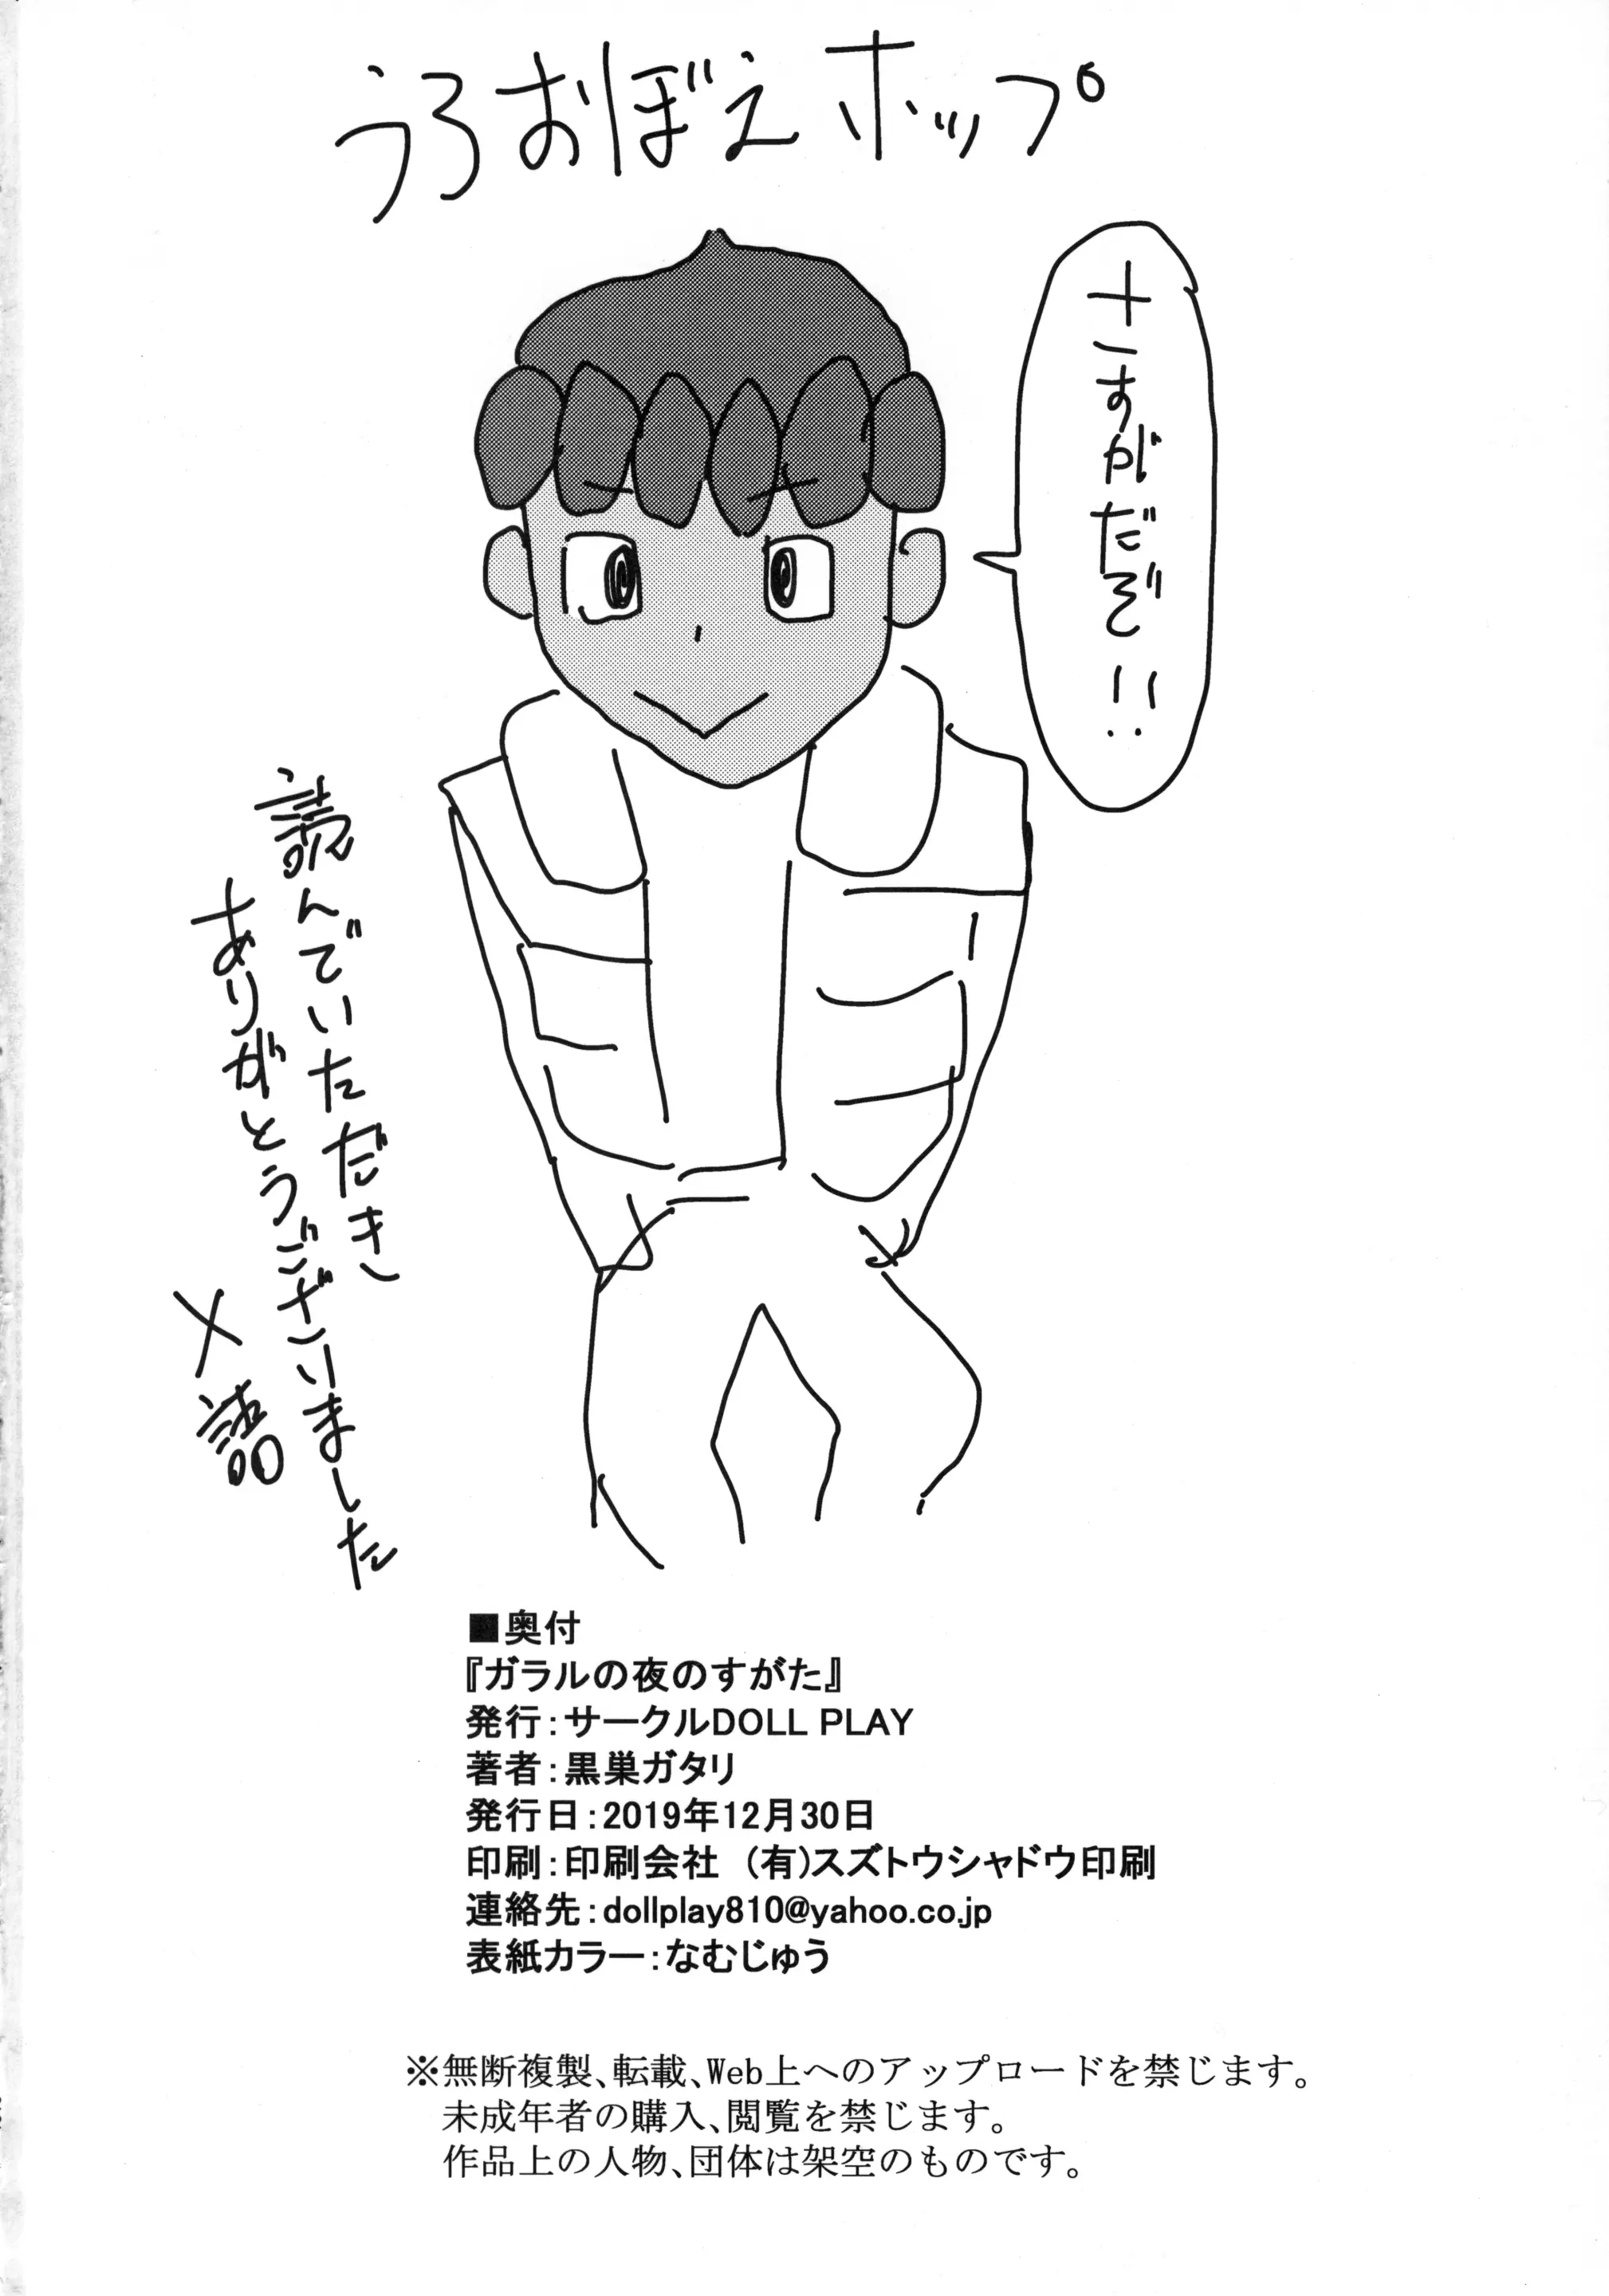 うろおぼえホップ
さすがだぞ!!
読んでいただき
ありがとうございました
✕詰
■奥付
『ガラルの夜のすがた』
発行：サークルDOLL PLAY
著者：黒巣ガタリ
発行日：2019年12月30日
印刷：印刷会社　(有)スズトウシャドウ印刷
連絡先：dollplay810@yahoo.co.jp
表紙カラー：なむじゅう
※無断複製、転載、Web上へのアップロードを禁じます。
未成年者の購入、閲覧を禁じます。
作品上の人物、団体は架空のものです。